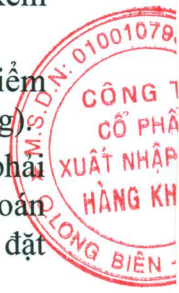 kèm
iểm
g).
phải
oán
đặt
M.S.D.N: 01001079
CÔNG T
CỔ PHẦ
XUẤT NHẬP
HÀNG KH
Q. LONG BIÊN -